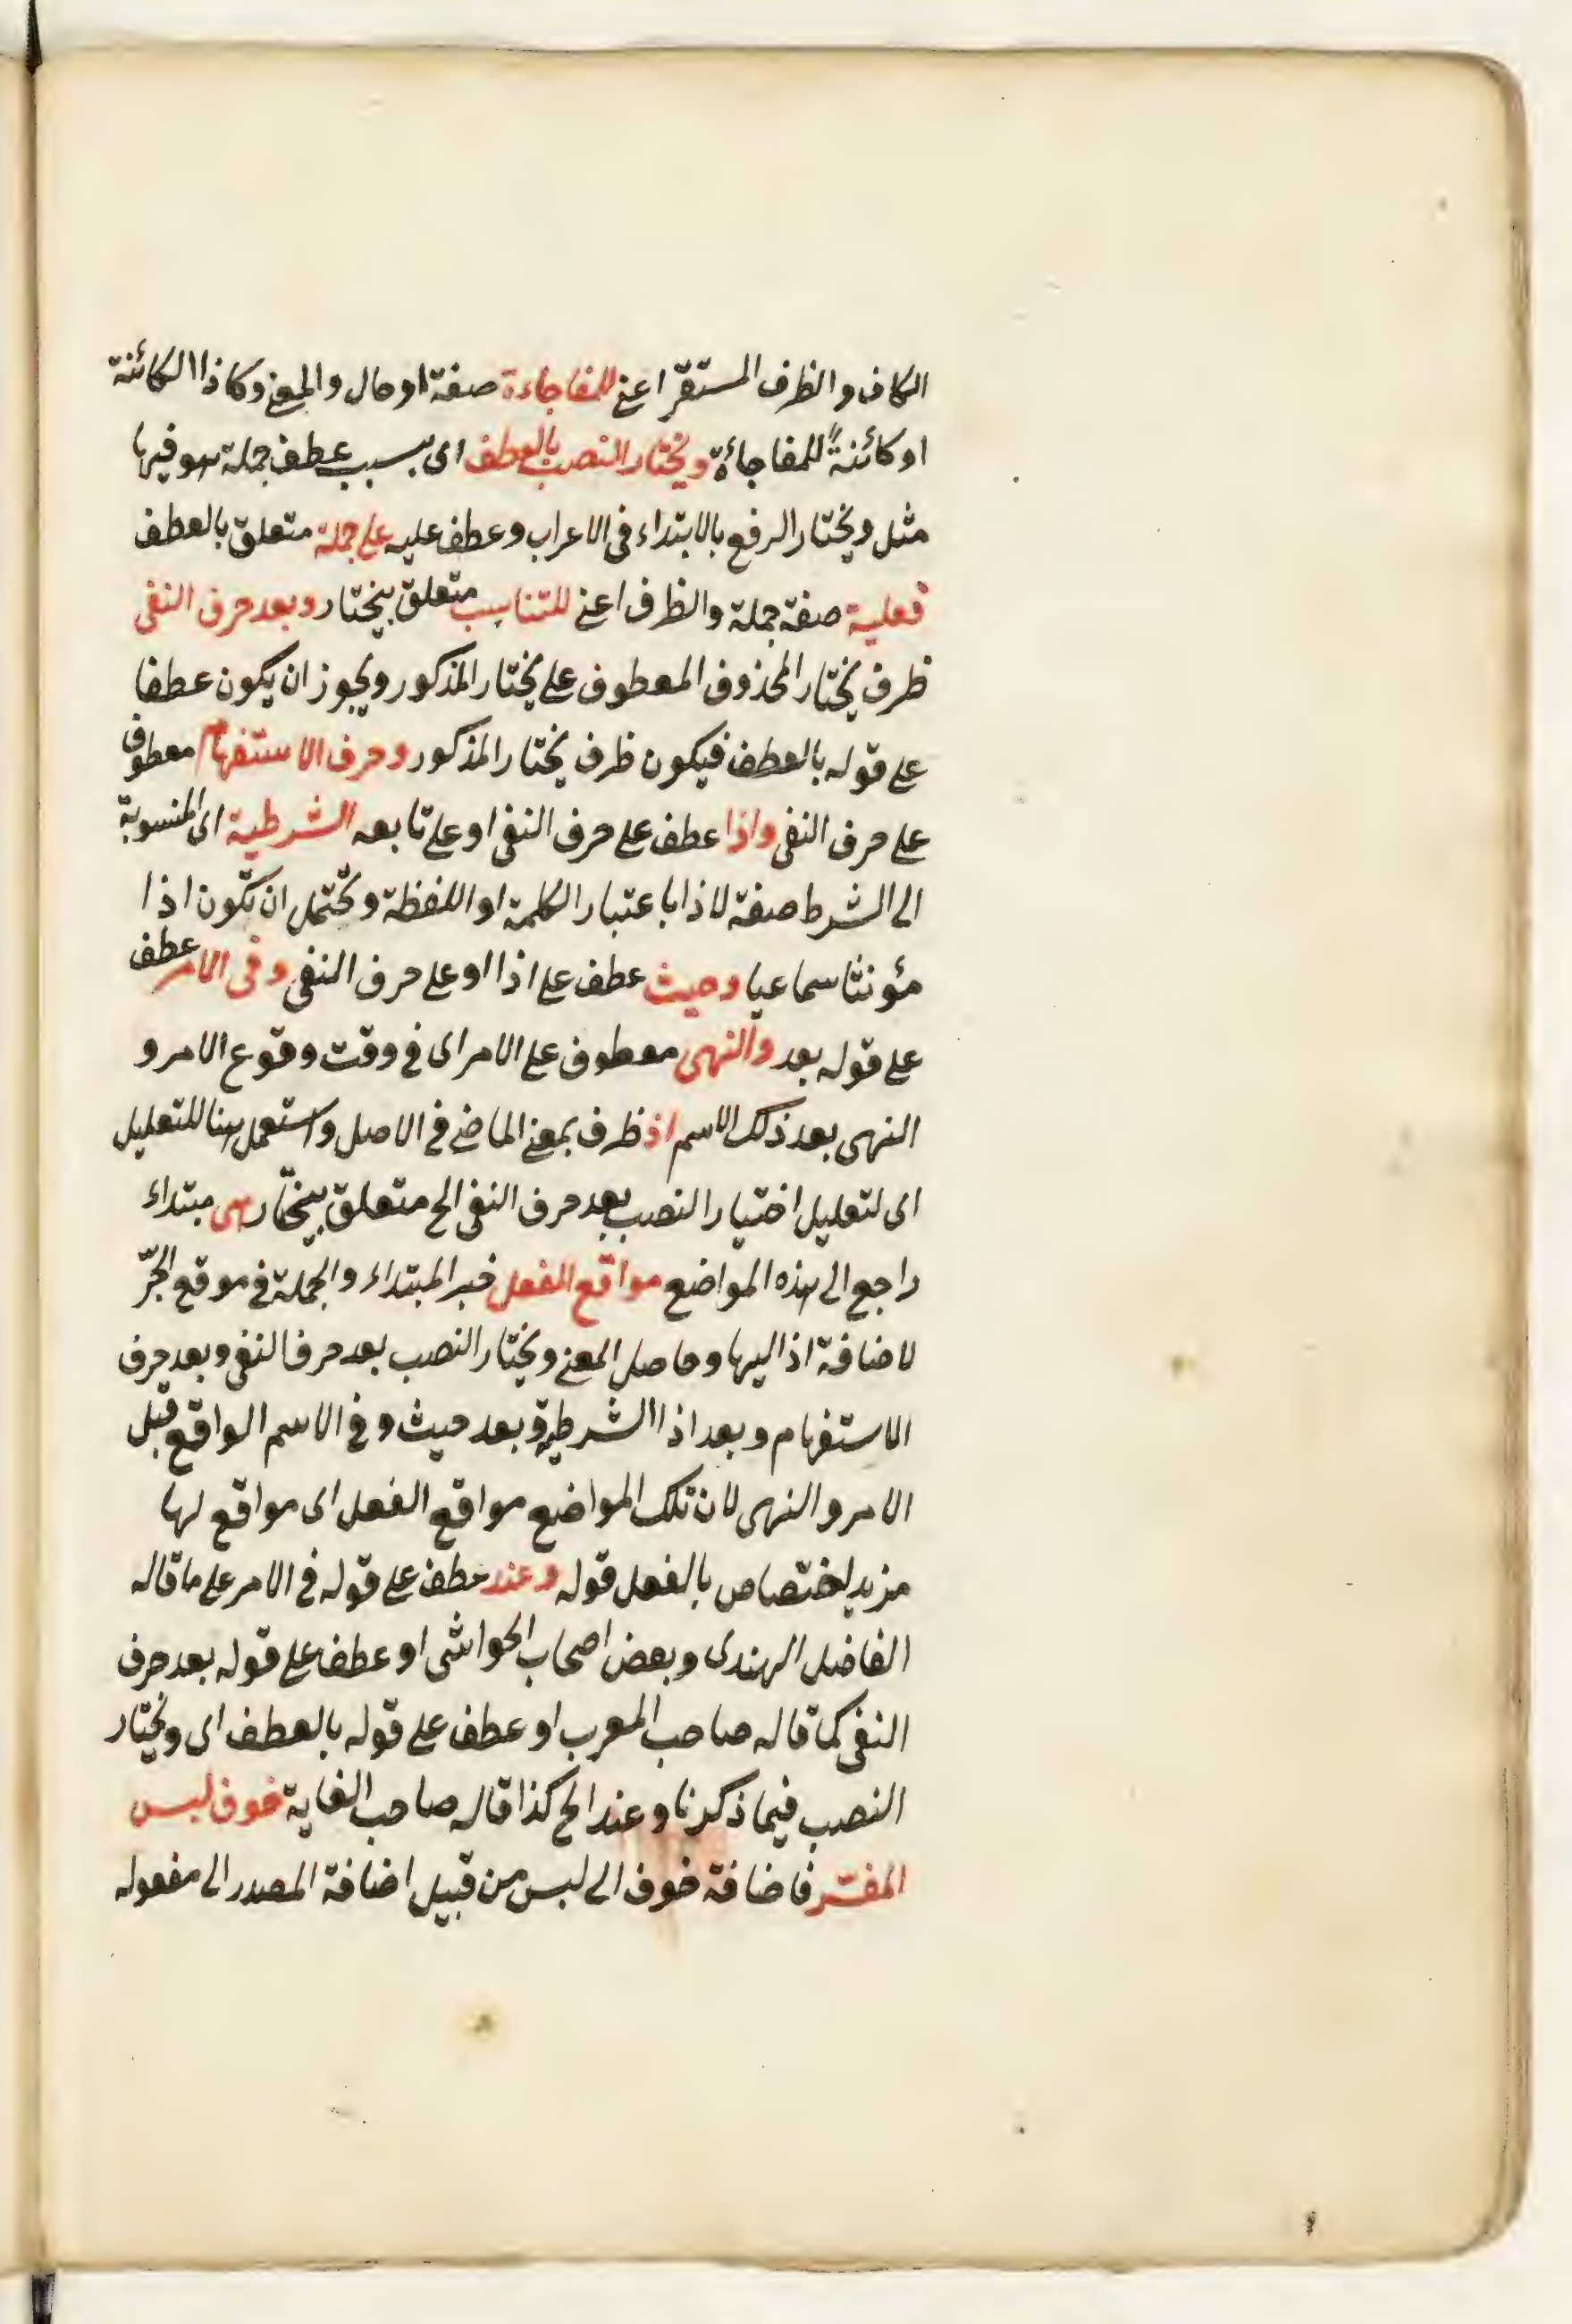 الكاف والظرف المستقر اعنى للمفاجاءة صفة او حال والمعنى وكاذا الكائنة
او كائنةً للمفاجأة ويختار النصب بالعطف اى بسبب عطف جملة هو فيها
مثل ويختار الرفع بالابتداء فى الاعراب وعطف عليه على جملة متعلق بالعطف
فعلية صفة جملة والظرف اعنى للتناسب متعلق بيختار وبعد حرف النفى
ظرف يختار المحذوف المعطوف على يختار المذكور ويجوز ان يكون عطفا
على قوله بالعطف فيكون ظرف يختار المذكور وحرف الاستفهام معطوف
على حرف النفى واذا عطف على حرف النفى او على تابعه الشرطية اى المنسوبة
الى الشرط صفة لاذا باعتبار الكلمة او اللفظة ويحتمل ان تكون اذا
مؤنثا سماعيا وحيث عطف على اذا او على حرف النفى وفى الامر عطف
على قوله بعد والنهى معطوف على الامر اى فى وقت وقوع الامر و
النهى بعد ذلك الاسم اذ ظرف بمعنى الماضى فى الاصل واستعمل هنا للتعليل
اى لتعليل اختيار النصب بعد حرف النفى الخ متعلق بيختار هى مبتداء
راجع الى هذه المواضع مواقع الفعل خبر المبتداء والجملة فى موقع الجرّ
لاضافة اذ اليها وحاصل المعنى ويختار النصب بعد حرف النفى وبعد حرف
الاستفهام وبعد اذا الشرطية وبعد حيث وفى الاسم الواقع قبل
الامر والنهى لان تلك المواضع مواقع الفعل اى مواقع لها
مزيد اختصاص بالفعل قوله وعند عطف على قوله فى الامر على ما قاله
الفاضل الهندى وبعض اصحاب الحواشى او عطف على قوله بعد حرف
النفى كما قاله صاحب المعرب او عطف على قوله بالعطف اى ويختار
النصب فيما ذكرنا وعند الخ كذا قاله صاحب الغاية خوف لبس
المفسّر فاضافة خوف الى لبس من قبيل اضافة المصدر الى مفعوله